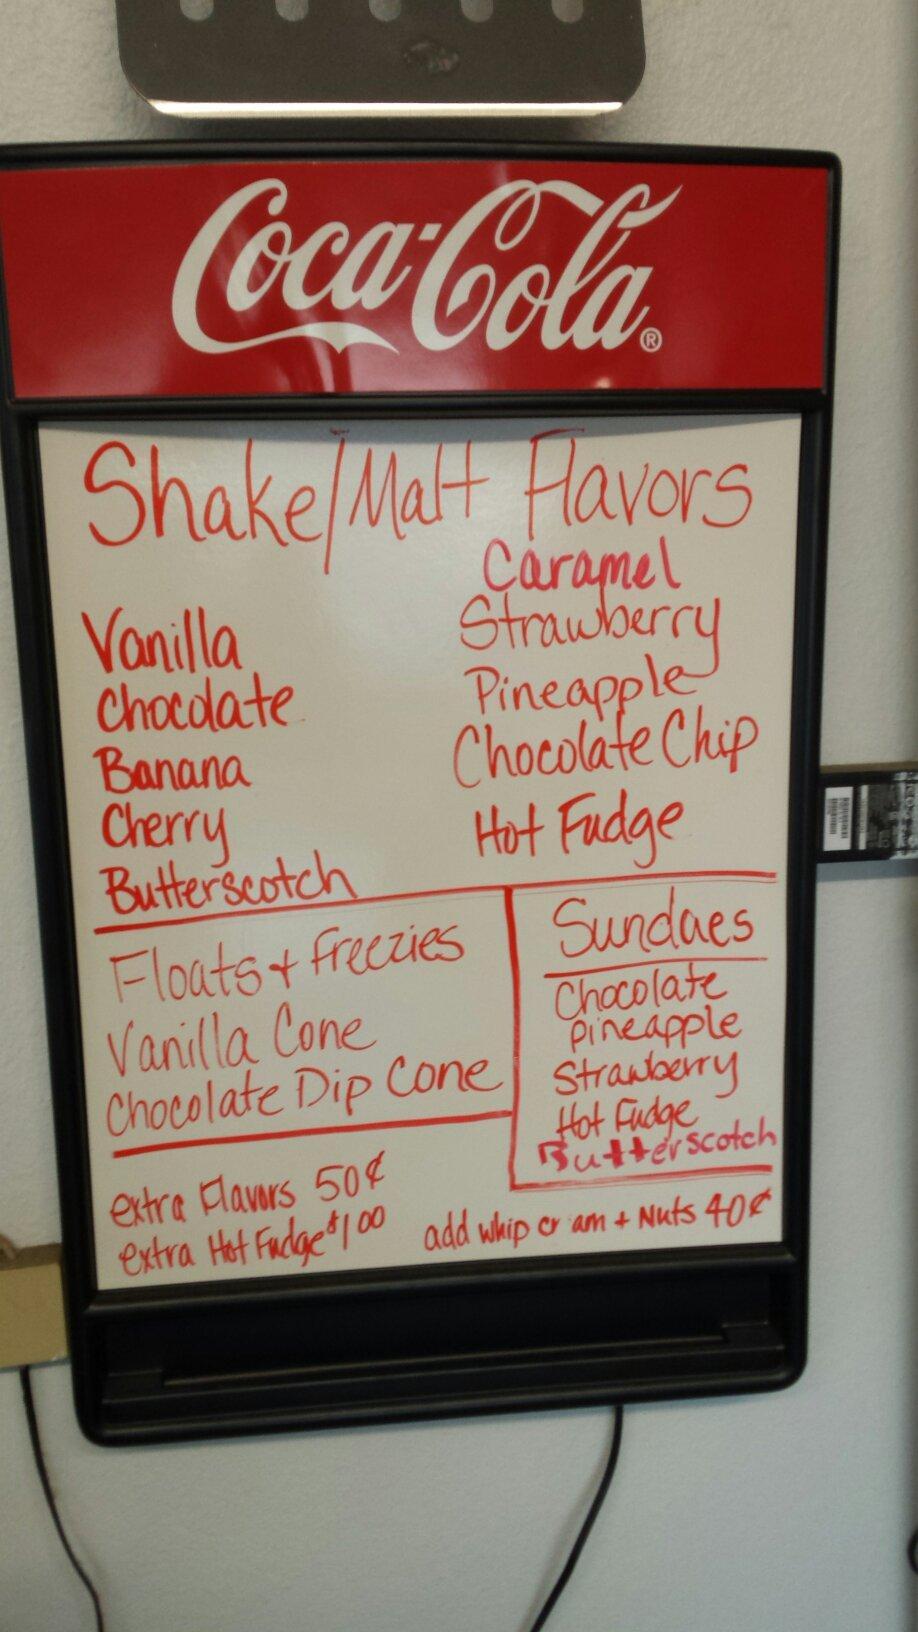 Coca-Cola®
Shake/Malt Flavors
Vanilla
Chocolate
Banana
Cherry
Butterscotch
Caramel
Strawberry
Pineapple
Chocolate Chip
Hot Fudge
Floats + Freezies
Vanilla Cone
Chocolate Dip Cone
Sundaes
Chocolate
Pineapple
Strawberry
Hot Fudge
Butterscotch
extra Flavors 50¢
extra Hot Fudge $1.00
add whip cr am + Nuts 40¢